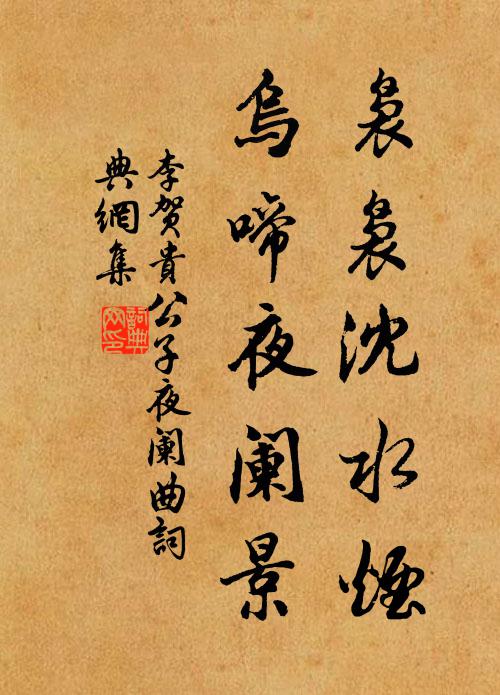 裊裊沈水煙
烏啼夜闌景
李賀貴公子夜闌曲詞
典網集
詞典網印